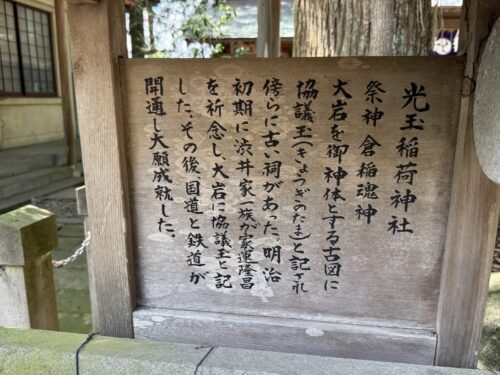 光玉稲荷神社
祭神 倉稲魂神
大岩を御神体とする古図に
協議玉(きょうぎのたま)と記され
傍らに古い祠があった。明治
初期に渋井家一族が家運隆昌
を祈念し、大岩に協議玉と記
した。その後、国道と鉄道が
開通し大願成就した。